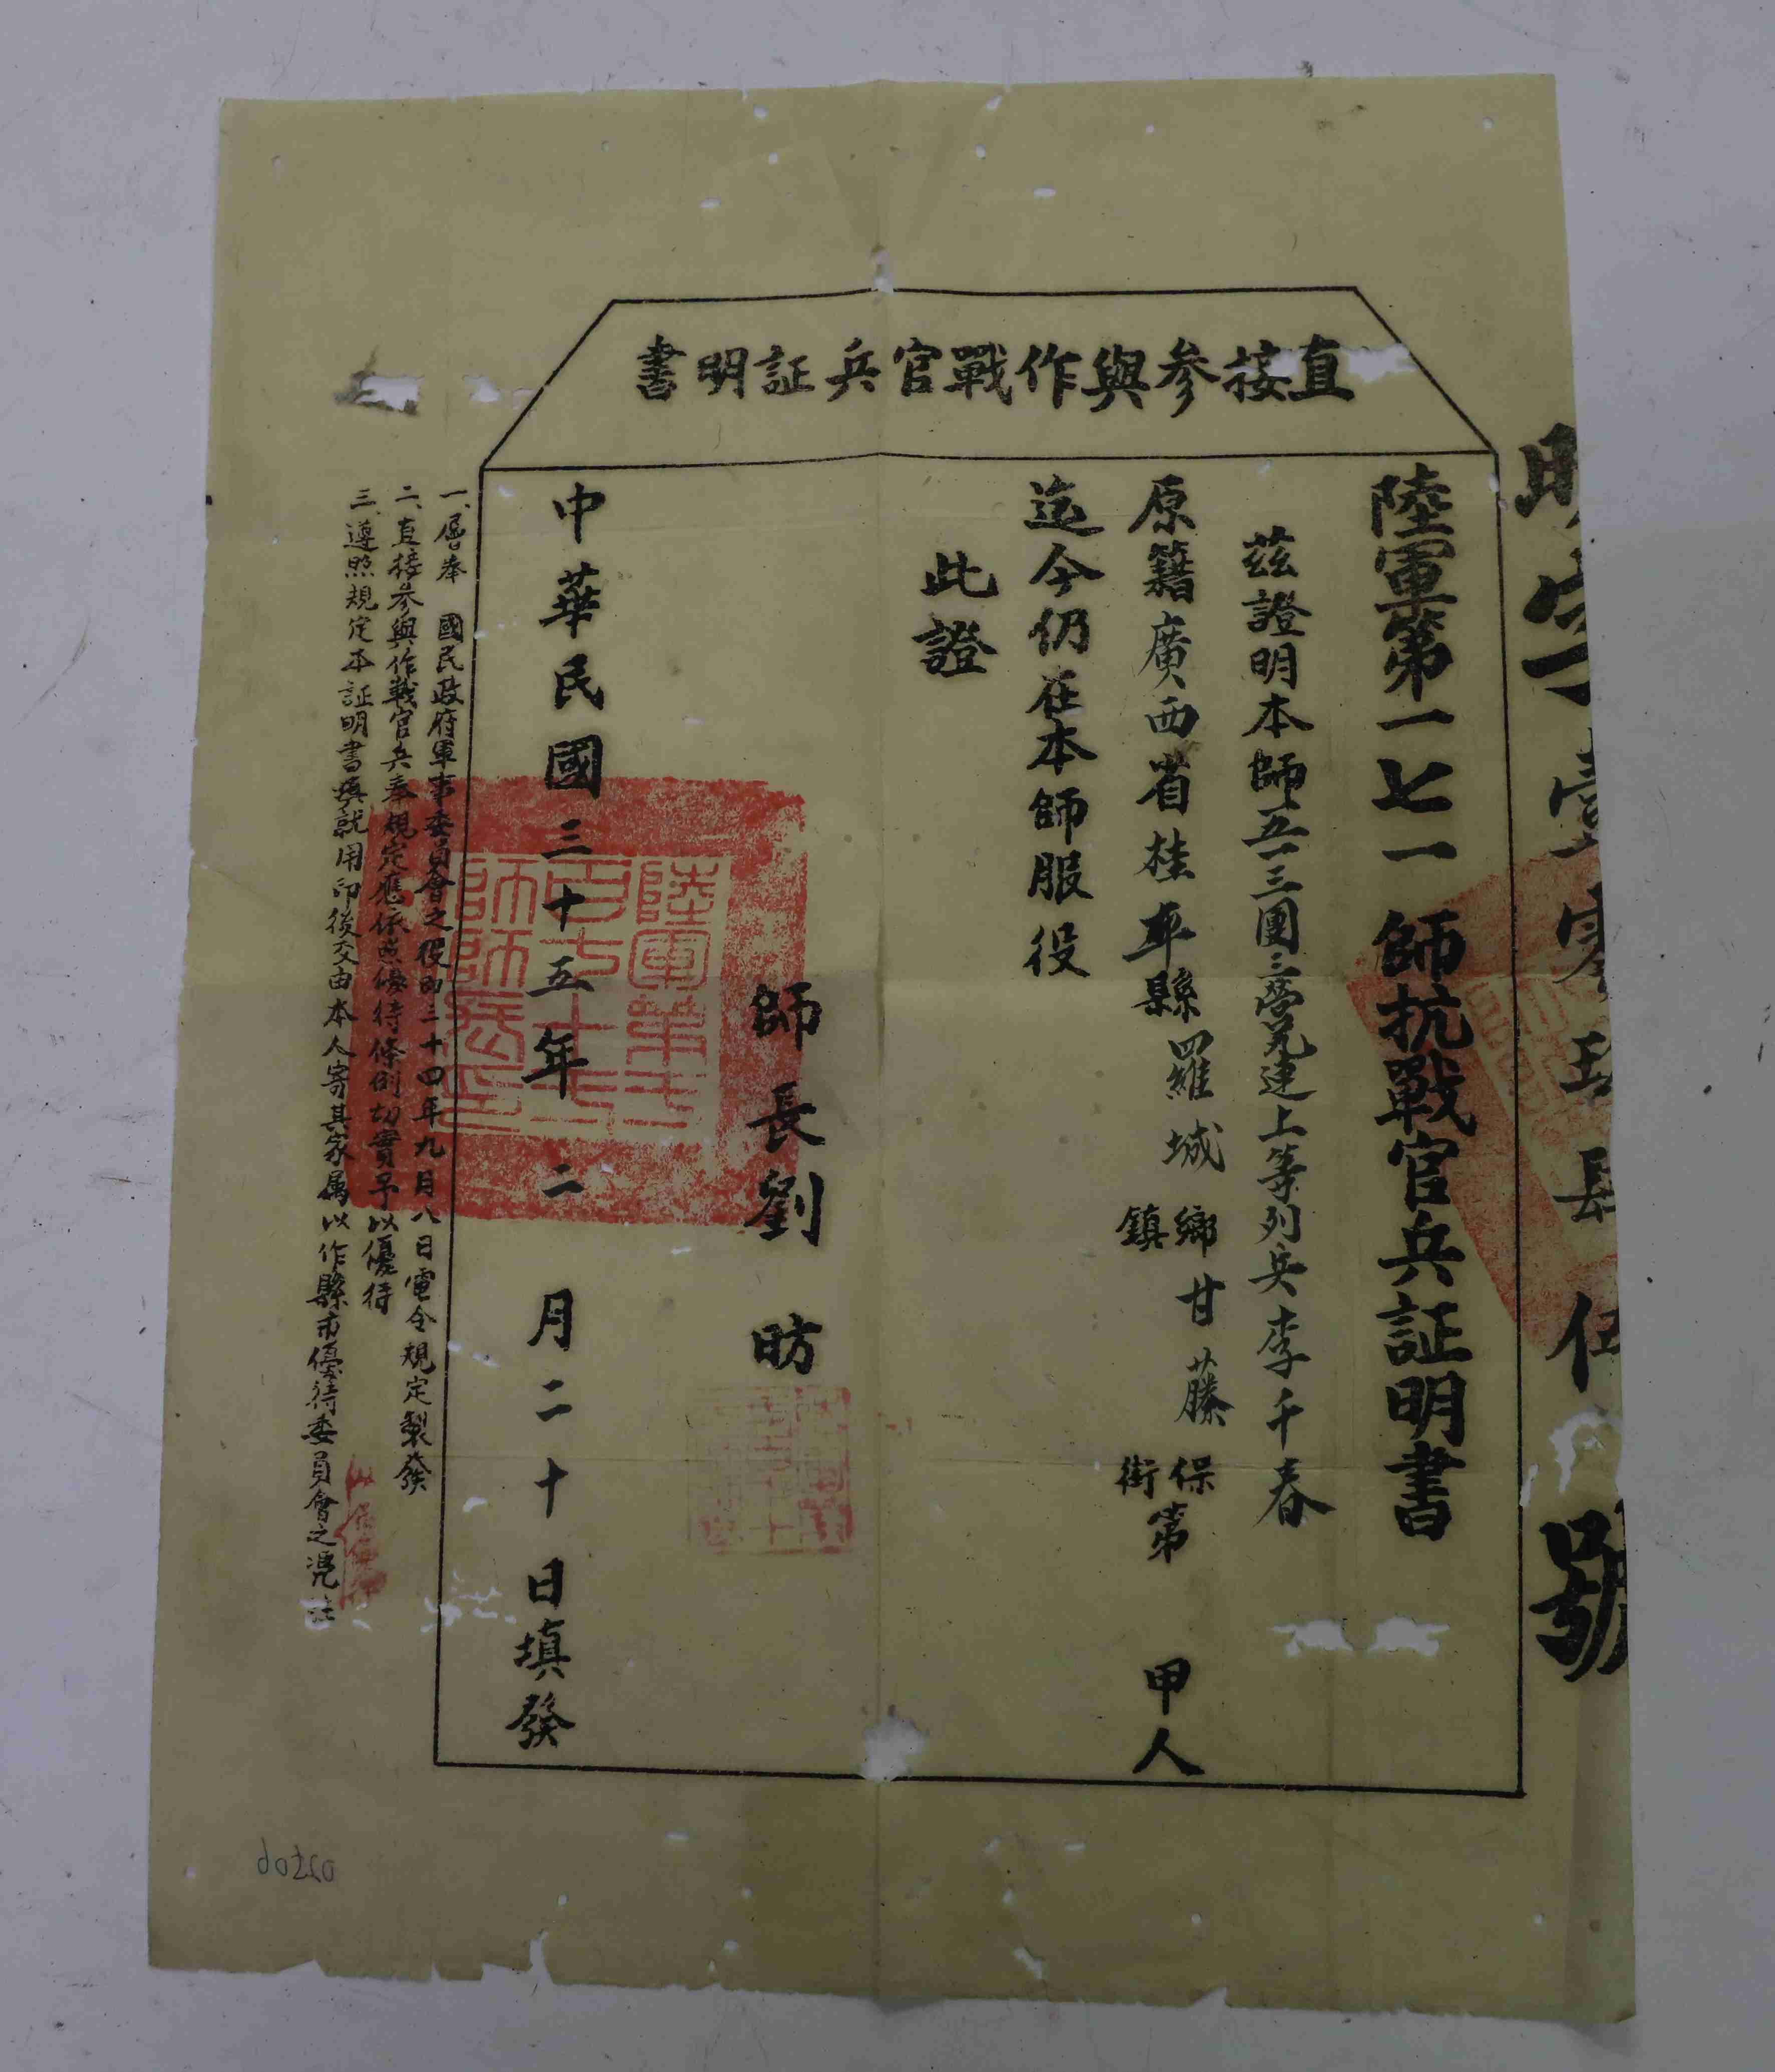 直接參與作戰官兵証明書
明字壹零玖肆伍號
陸軍第一七一師抗戰官兵証明書
茲證明本師五一三團三營兄連上等列兵李千春
原籍廣西省桂平縣羅城鄉鎮甘藤保街第 甲人
迄今仍在本師服役
此證
師長劉昉
中華民國三十五年二月二十日填發
一、層奉 國民政府軍事委員會之役即三十四年九月八日電令規定製發
二、直接參與作戰官兵奉規定應依照優待條例切實予以優待
三、遵照規定本証明書填就用印後交由本人寄其家屬以作縣市優待委員會之憑証